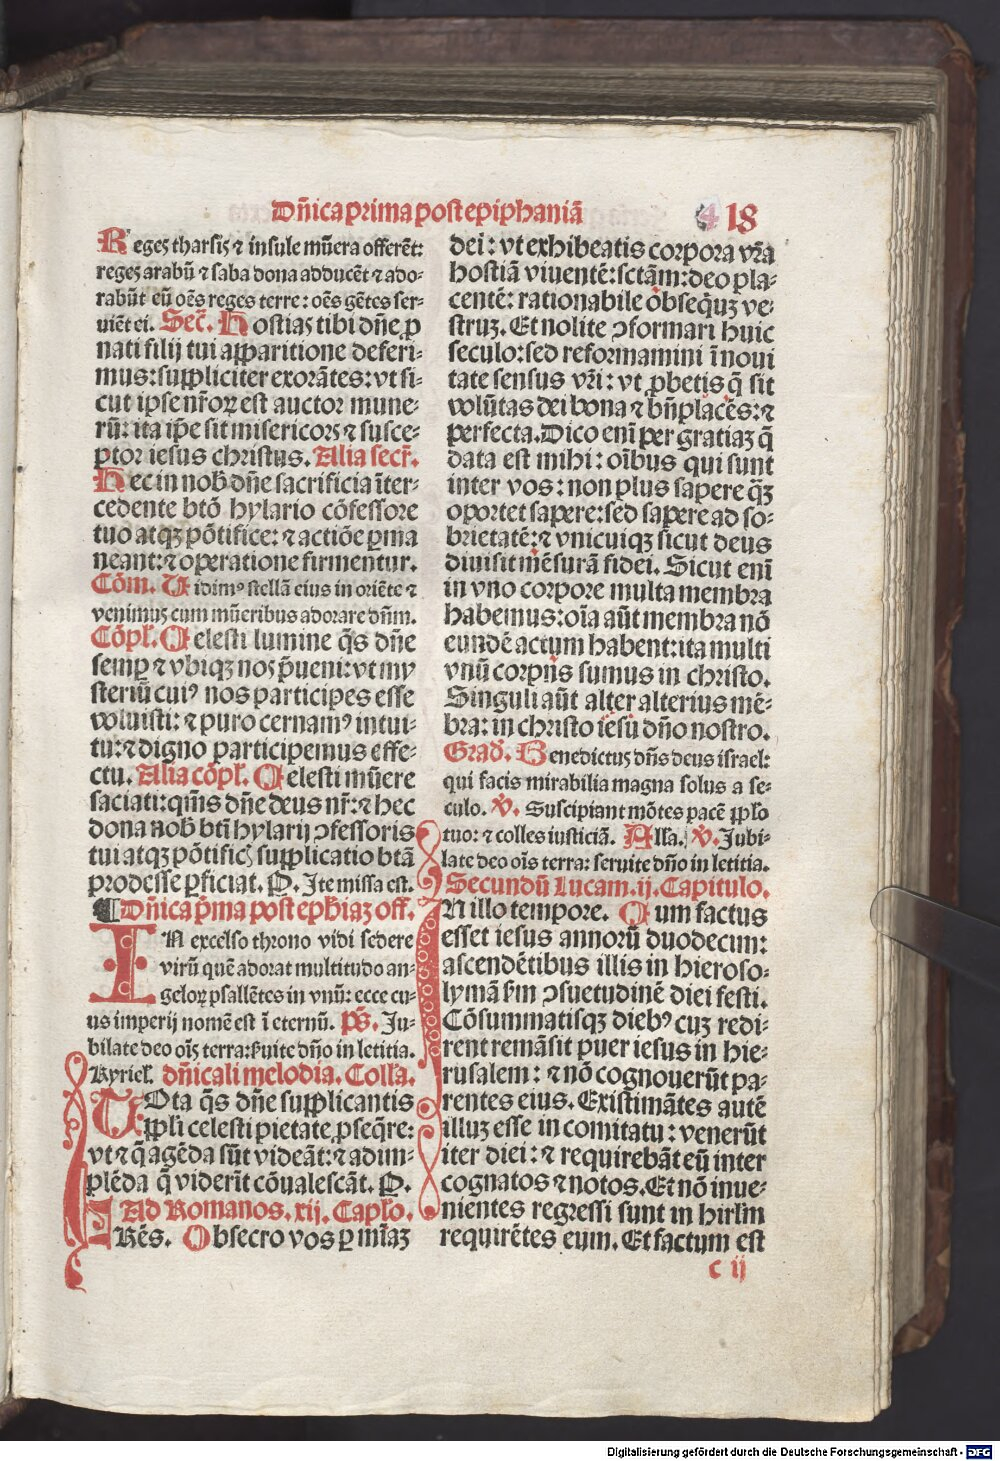 Dñica prima post epiphaniã
4 18
Reges tharsis ⁊ insule mũera offerẽt:
reges arabũ ⁊ saba dona adducẽt ⁊ ado-
rabũt eũ oẽs reges terre: oẽs gẽtes ser-
uiẽt ei. Secr̃. Hostias tibi dñe ꝓ
nati filij tui apparitione deferi-
mus: suppliciter exorãtes: vt si-
cut ipse nr̃oꝝ est auctor mune-
rũ: ita ip̃e sit misericors ⁊ susce-
ptor iesus christus. Alia secr̃.
Hec in nob̃ dñe sacrificia ĩter-
cedente btõ hylario cõfessore
tuo atqꝫ põtifice: ⁊ actiõe ꝑma
neant: ⁊ operatione firmentur.
Cõm. Vidimꝰ stellã eius in oriẽte ⁊
venimus cum mũeribus adorare dñm.
Cõpl̃. Celesti lumine q̃s dñe
semꝑ ⁊ vbiqꝫ nos p̃ueni: vt my
steriũ cuiꝰ nos participes esse
voluisti: ⁊ puro cernamꝰ intui-
tu: ⁊ digno participemus effe-
ctu. Alia cõpl̃. Celesti mũere
saciati: q̃ms dñe deus nr̃: ⁊ hec
dona nob̃ bti hylarij ꝯfessoris
tui atqꝫ põtific̃ supplicatio btã
prodesse ꝑficiat. P. Ite missa est.
¶ Dñica p̃ma post eph̃iaꝫ off.
IN excelso throno vidi sedere
virũ quẽ adorat multitudo an-
geloꝝ psallẽtes in vnũ: ecce cu-
us imperij nomẽ est ĩ eternũ. Ps̃. Ju-
bilate deo oĩs terra: ẜuite dño in letitia.
Kyriel̃. dñicali melodia. Coll̃a.
VOta q̃s dñe supplicantis
ppl̃i celesti pietate ꝓseq̃re:
vt ⁊ q̃ agẽda sũt videãt: ⁊ adim-
plẽda q̃ viderit cõualescãt. P.
Ad Romanos. xij. Capl̃o.
FRẽs. Obsecro vos ꝑ miãꝫ
dei: vt exhibeatis corpora vr̃a
hostiã viuentẽ: sctãm: deo pla-
centẽ: rationabile obseq̃uꝫ ve-
struꝫ. Et nolite ꝯformari huic
seculo: sed reformamini ĩ noui
tate sensus vr̃i: vt ꝓbetis q̃ sit
volũtas dei bona ⁊ bñplacẽs: ⁊
perfecta. Dico eni᷑ per gratiaꝫ q̃
data est mihi: oĩbus qui sunt
inter vos: non plus sapere q̃ꝫ
oportet sapere: sed sapere ad so-
brietatẽ: ⁊ vnicuiqꝫ sicut deus
diuisit mẽsurã fidei. Sicut enĩ
in vno corpore multa membra
habemus: oĩa aũt membra nõ
eundẽ actum habent: ita multi
vnũ corpus sumus in christo.
Singuli aũt alter alterius mẽ-
bra: in christo iesu dño nostro.
Grad̃. Benedictus dñs deus israel:
qui facis mirabilia magna solus a se-
culo. V̇. Suscipiant mõtes pacẽ ppl̃o
tuo: ⁊ colles iusticiã. All̃a. V̇. Jubi-
late deo oĩs terra: seruite dño in letitia.
Secundũ Lucam. ij. Capitulo.
IN illo tempore. Cum factus
esset iesus annorũ duodecim:
ascendẽtibus illis in hieroso-
lymã ẜm ꝯsuetudinẽ diei festi.
Cõsummatisqꝫ diebꝰ cuꝫ redi-
rent remãsit puer iesus in hie-
rusalem: ⁊ nõ cognouerũt pa-
rentes eius. Existimãtes autẽ
illuꝫ esse in comitatu: venerũt
iter diei: ⁊ requirebãt eũ inter
cognatos ⁊ notos. Et nõ inue-
nientes regressi sunt in hirlm̃
requirẽtes eum. Et factum est
c ij
Digitalisierung gefördert durch die Deutsche Forschungsgemeinschaft - DFG